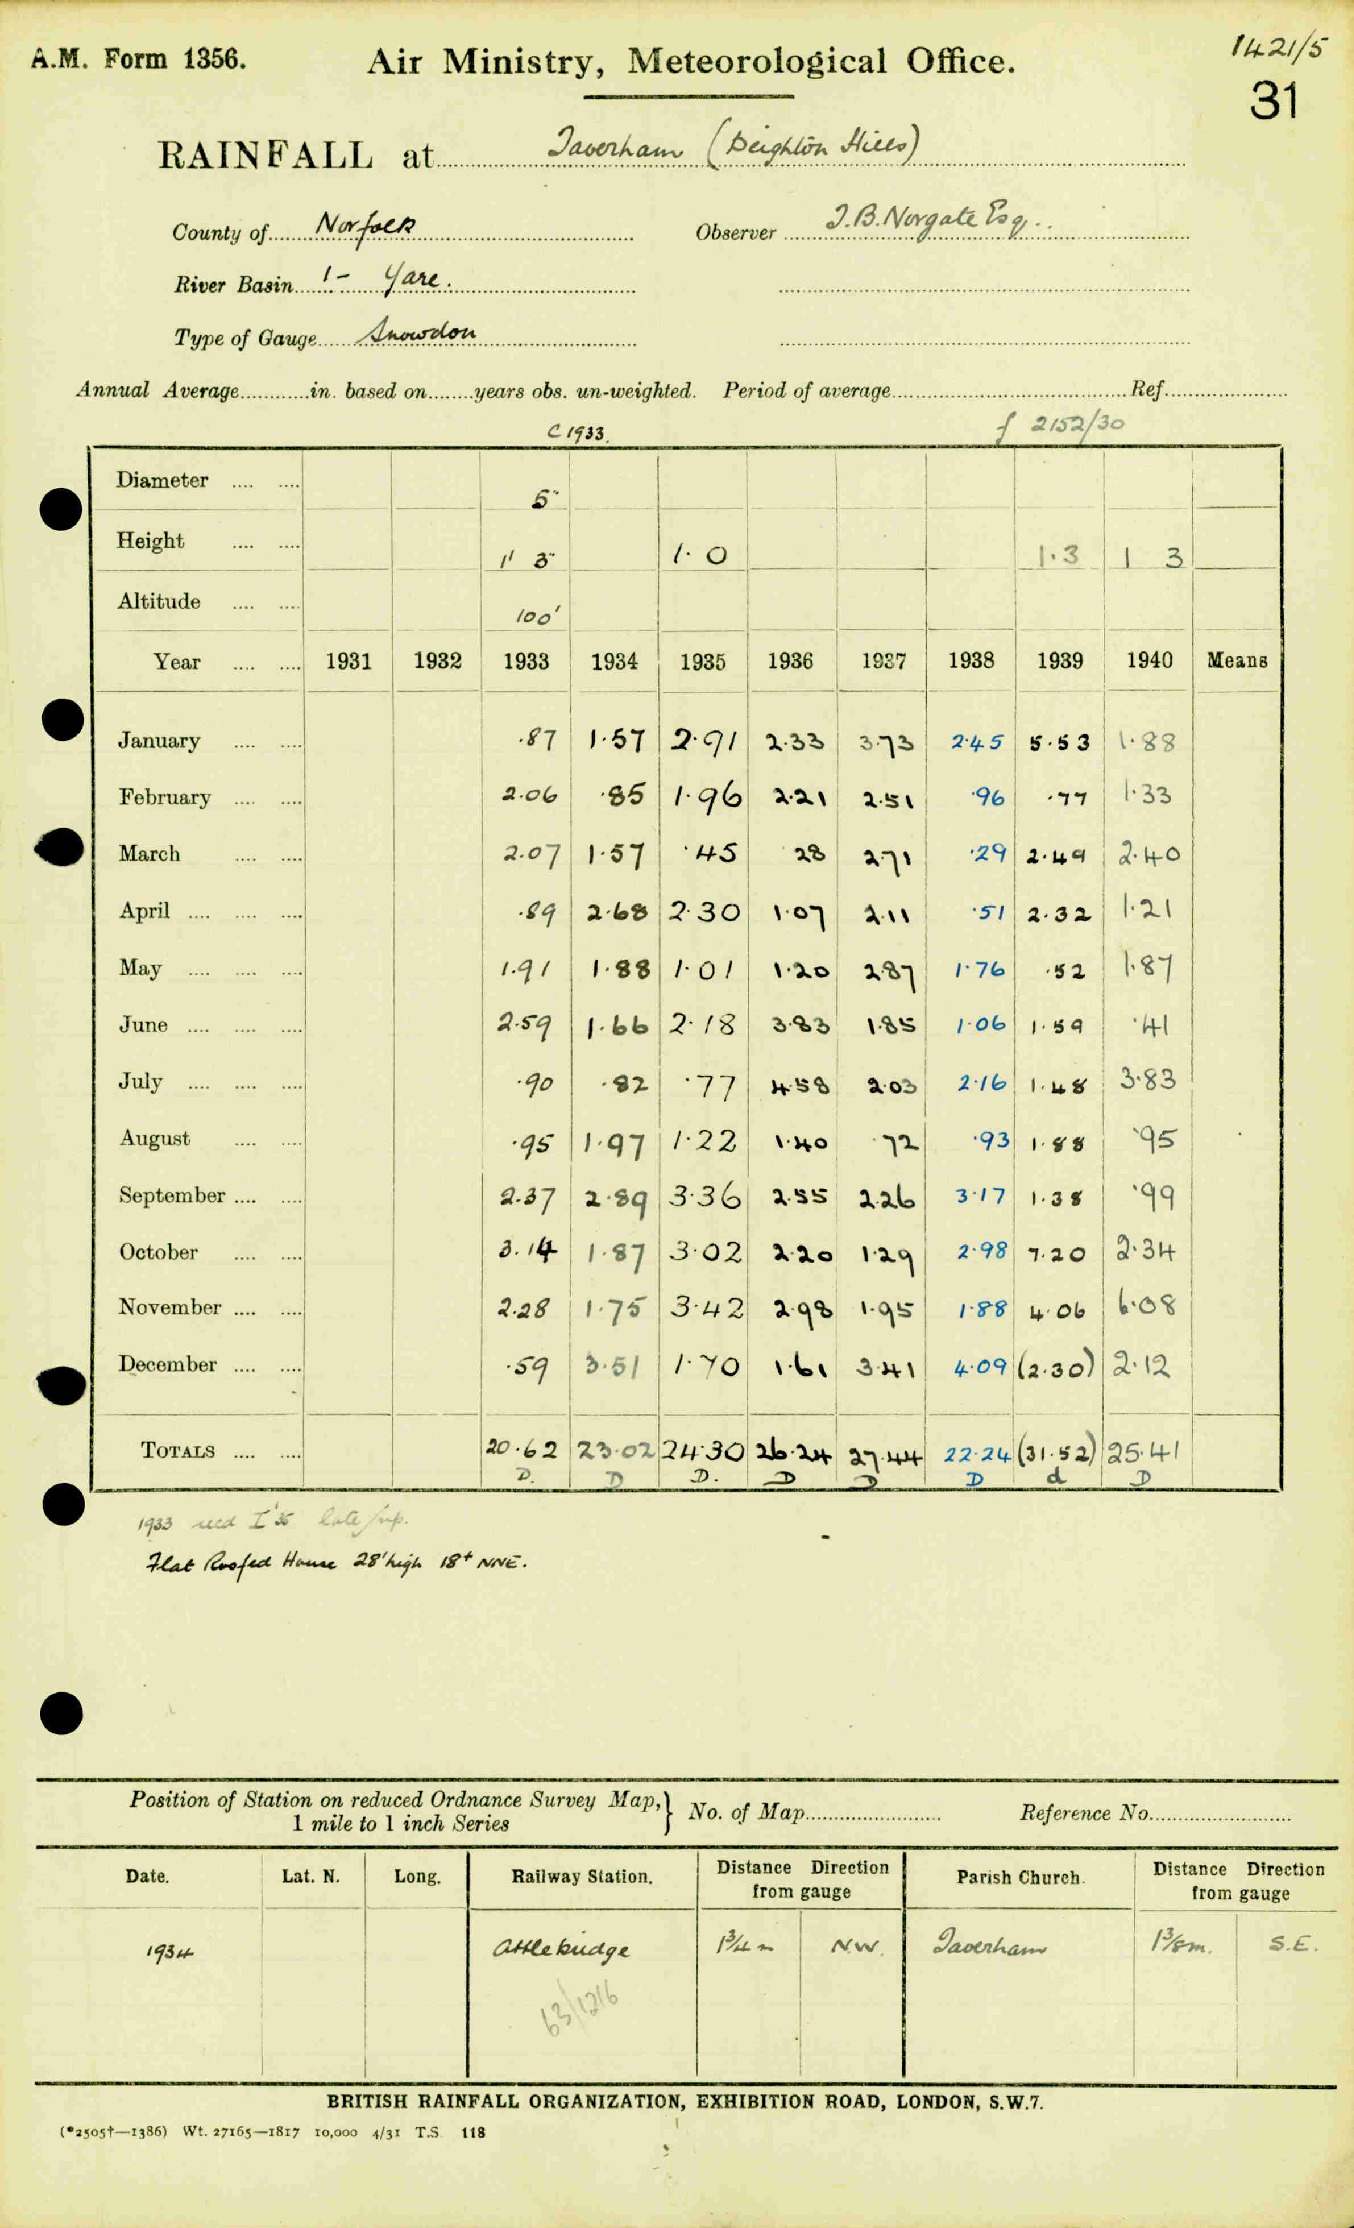 A.M. Form 1356.
Air Ministry, Meteorological Office.
1421/5
31
RAINFALL at Taverham (Deighton Hills)
County of Norfolk Observer T.B. Norgate Esq.
River Basin 1- Yare.
Type of Gauge Snowdon
Annual Average in. based on years obs. un-weighted. Period of average Ref.
C 1933. f 2152/30
Diameter 5"
Height 1' 3" 1·0 1·3 1 3
Altitude 100'
Year 1931 1932 1933 1934 1935 1936 1937 1938 1939 1940 Means
January ·87 1·57 2·91 2·33 3·73 2·45 5·53 1·88
February 2·06 ·85 1·96 2·21 2·51 ·96 ·77 1·33
March 2·07 1·57 ·45 28 2·71 ·29 2·49 2·40
April ·89 2·68 2·30 1·07 2·11 ·51 2·32 1·21
May 1·91 1·88 1·01 1·20 2·87 1·76 ·52 1·87
June 2·59 1·66 2·18 3·83 1·85 1·06 1·59 ·41
July ·90 ·82 ·77 4·58 2·03 2·16 1·48 3·83
August ·95 1·97 1·22 1·40 ·72 ·93 1·88 ·95
September 2·37 2·89 3·36 2·55 2·26 3·17 1·38 ·99
October 3·14 1·87 3·02 2·20 1·29 2·98 7·20 2·34
November 2·28 1·75 3·42 2·98 1·95 1·88 4·06 6·08
December ·59 3·51 1·70 1·61 3·41 4·09 (2·30) 2·12
TOTALS 20·62 23·02 24·30 26·24 27·44 22·24 (31·52) 25·41
D. D D. D D D d D
1933 recd I'35 late
Flat Roofed House 28' high 18+ NNE.
Position of Station on reduced Ordnance Survey Map, 1 mile to 1 inch Series } No. of Map Reference No.
Date. Lat. N. Long. Railway Station. Distance Direction from gauge Parish Church. Distance Direction from gauge
1934 Attlebridge 1¾ m N.W. Taverham 1⅜m. S.E.
63/1216
BRITISH RAINFALL ORGANIZATION, EXHIBITION ROAD, LONDON, S.W.7.
(*2505†—1386) Wt. 27165—1817 10,000 4/31 T.S. 118